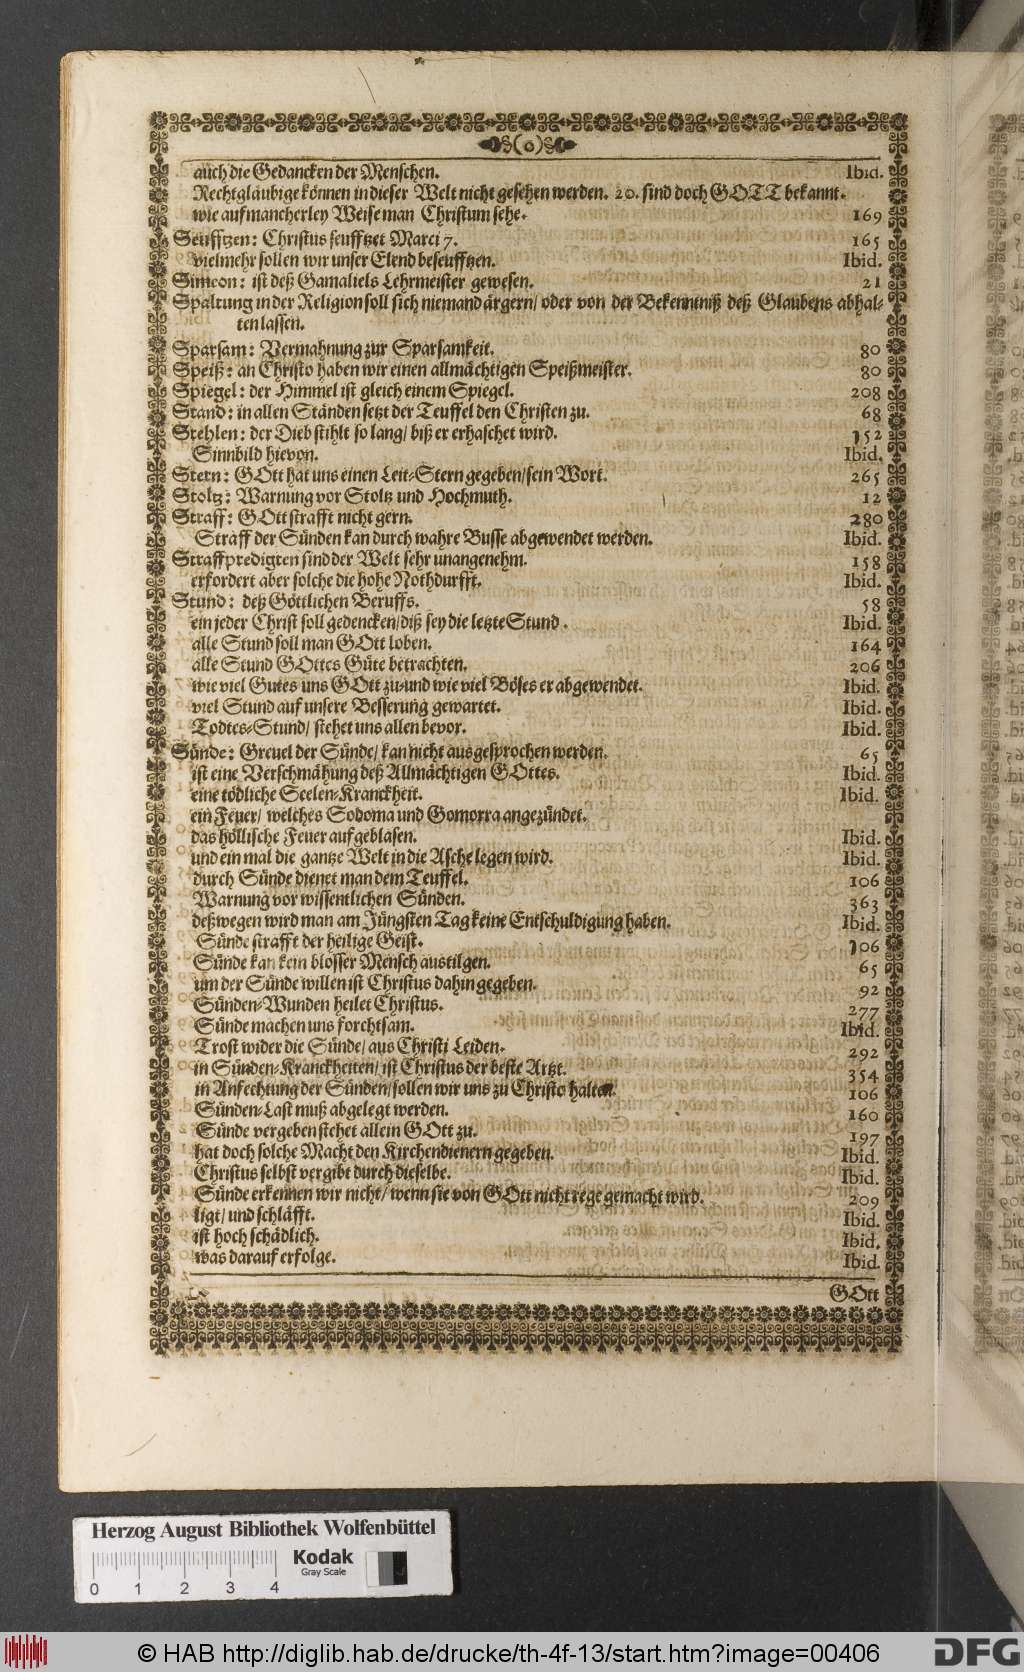 (o)
auch die Gedancken der Menschen. Ibid.
Rechtgläubige können in dieser Welt nicht gesehen werden. 20. sind doch GOTT bekannt.
wie auf mancherley Weise man Christum sehe. 169
Seufftzen: Christus seufftzet Marci 7. 165
vielmehr sollen wir unser Elend beseufftzen. Ibid.
Simeon: ist deß Gamaliels Lehrmeister gewesen. 21
Spaltung in der Religion soll sich niemand ärgern/ oder von der Bekenntniß deß Glaubens abhal-
ten lassen.
Sparsam: Vermahnung zur Sparsamkeit. 80
Speiß: an Christo haben wir einen allmächtigen Speißmeister. 80
Spiegel: der Himmel ist gleich einem Spiegel. 208
Stand: in allen Ständen setzt der Teuffel den Christen zu. 68
Stehlen: der Dieb stihlt so lang/ biß er erhaschet wird. 152
Sinnbild hievon. Ibid.
Stern: GOtt hat uns einen Leit-Stern gegeben/ sein Wort. 265
Stoltz: Warnung vor Stoltz und Hochmuth. 12
Straff: GOtt strafft nicht gern. 280
Straff der Sünden kan durch wahre Busse abgewendet werden. Ibid.
Straffpredigten sind der Welt sehr unangenehm. 158
erfordert aber solche die hohe Nothdurfft. Ibid.
Stund: deß Göttlichen Beruffs. 58
ein jeder Christ soll gedencken/ diß sey die letzte Stund. Ibid.
alle Stund soll man GOtt loben. 164
alle Stund GOttes Güte betrachten. 206
wie viel Gutes uns GOtt zu-und wie viel Böses er abgewendet. Ibid.
viel Stund auf unsere Besserung gewartet. Ibid.
Todtes-Stund/ stehet uns allen bevor. Ibid.
Sünde: Greuel der Sünde/ kan nicht ausgesprochen werden. 65
ist eine Verschmähung deß Allmächtigen GOttes. Ibid.
eine tödliche Seelen-Kranckheit. Ibid.
ein Feuer/ welches Sodoma und Gomorra angezündet.
das höllische Feuer aufgeblasen. Ibid.
und ein mal die gantze Welt in die Asche legen wird. Ibid.
durch Sünde dienet man dem Teuffel. 106
Warnung vor wissentlichen Sünden. 363
deßwegen wird man am Jüngsten Tag keine Entschuldigung haben. Ibid.
Sünde strafft der heilige Geist. 106
Sünde kan kein blosser Mensch austilgen. 65
um der Sünde willen ist Christus dahin gegeben. 92
Sünden-Wunden heilet Christus. 277
Sünde machen uns forchtsam. Ibid.
Trost wider die Sünde/ aus Christi Leiden. 292
in Sünden-Kranckheiten/ ist Christus der beste Artzt. 354
in Anfechtung der Sünden/ sollen wir uns zu Christo halten. 106
Sünden-Last muß abgelegt werden. 160
Sünde vergeben stehet allein GOtt zu. 197
hat doch solche Macht den Kirchendienern gegeben. Ibid.
Christus selbst vergibt durch dieselbe. Ibid.
Sünde erkennen wir nicht/ wenn sie von GOtt nicht rege gemacht wird. 209
ligt/ und schläfft. Ibid.
ist hoch schädlich. Ibid.
was darauf erfolge. Ibid.
GOtt
Herzog August Bibliothek Wolfenbüttel
Kodak
Gray Scale
0 1 2 3 4
© HAB http://diglib.hab.de/drucke/th-4f-13/start.htm?image=00406
DFG